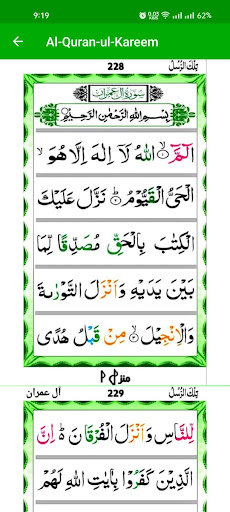 9:19 62%
Al-Quran-ul-Kareem
228 تِلْكَ الرُّسُلُ
سُوْرَةُ اٰلِ عِمْرَان
بِسْمِ اللّٰهِ الرَّحْمٰنِ الرَّحِيْمِ
الٓمّٓ ۙ اللّٰهُ لَاۤ اِلٰهَ اِلَّا هُوَ ۙ
الْحَيُّ الْقَيُّوْمُ ؕ نَزَّلَ عَلَيْكَ
الْكِتٰبَ بِالْحَقِّ مُصَدِّقًا لِّمَا
بَيْنَ يَدَيْهِ وَاَنْزَلَ التَّوْرٰىةَ
وَالْاِنْجِيْلَ ۙ مِنْ قَبْلُ هُدًى
منزل ١
آل عمران 229 تِلْكَ الرُّسُلُ
لِّلنَّاسِ وَاَنْزَلَ الْفُرْقَانَ ؕ اِنَّ
الَّذِيْنَ كَفَرُوْا بِاٰيٰتِ اللّٰهِ لَهُمْ